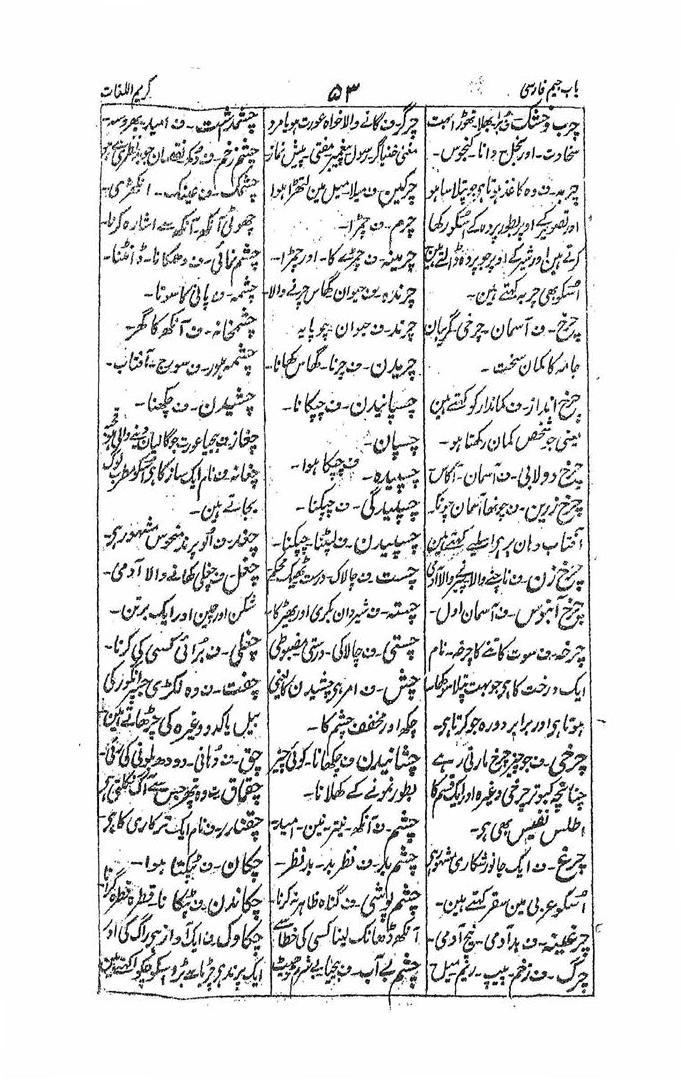 باب جیم فارسی
۵۳
کریم اللغات
چرب و خشک ۔ ف بُرا بھلا تھوڑا بہت
سخاوت ۔ اور بخل دانا ۔ کنجوس ۔
چربہ ۔ ف وہ کاغذ ہوتا ہی جو پتلا سا ہو
اور تصویر کے اوپر بطور پردہ کے اُسکو رکھا
کرتے ہین اور شیر کے اوپر جو پردہ ڈالتے ہین
اُسکو بھی چربہ کہتے ہین ۔
چرخ ۔ ف آسمان ۔ چرخی ۔ گریبان
جامہ کا کمان سخت ۔
چرخ انداز ۔ ف کماندار کو کہتے ہین
یعنی جو شخص کمان رکھتا ہو ۔
چرخ دولابی ۔ ف آسمان ۔ آکاس
چرخ زرین ۔ ف چوتھا آسمان چونکہ
آفتاب وہان ہر اسلیے کہتے ہین
چرخ زن ۔ ف ناچنے والا پھرنیوالا آدمی
چرخ آبنوس ۔ ف آسمان اول ۔
چرخہ ۔ ف سوت کاتنے کا چرخہ ۔ نام
ایک درخت کا ہی جو بہت پتلا سوکھا سا
ہوتا ہی اور برابر دورہ جو کرتا ہی ۔
چرخی ۔ ف جو چیز چرخ مارتی رہے
چنانچہ کبوتر چرخی وغیرہ اور ایک قسم کا
اطلس نفیس بھی ہی ۔
چرغ ۔ ف ایک جانور شکاری مشہور ہی
اُسکو عربی مین سقر کہتے ہین ۔
چرغینہ ۔ ف بد آدمی ۔ نیچ آدمی ۔
چرک ۔ ف زخم ۔ پیپ ۔ ریم میل
چرگر ۔ ف گانے والا خواہ عورت ہو یا مرد
مغنی خنیاگر ۔ رسول پیغمبر مفتی ۔ پیش نماز
چرکین ۔ ف میلا میل مین لتھڑا ہوا
چرم ۔ ف چمڑا ۔
چرمینہ ۔ ف چمڑے کا ۔ اور چمڑا ۔
چرندہ ۔ ف حیوان گھاس چرنے والا ۔
چرند ۔ ف حیوان چوپایہ
چریدن ۔ ف چرنا ۔ گھاس کھانا ۔
چسپانیدن ۔ ف چپکانا ۔
چسپان ۔
چسپیدہ ۔ ف چپکا ہوا ۔
چسپیدگی ۔ ف چپکنا ۔
چسپیدن ۔ ف لپٹنا چپکنا ۔
چست ۔ ف چالاک ۔ درست ٹھیک محکم
چستہ ۔ ف شیردان بکری اور بھیڑ کا
چستی ۔ ف چالاکی ۔ درستی مضبوطی
چش ۔ ف امر ہی چشیدن کا یعنی
چکھ اور مخفف چشم کا ۔
چشانیدن ۔ ف چکھانا ۔ کوئی چیز
بطور نمونے کے کھلانا ۔
چشم ۔ ف آنکھ ۔ نیتر ۔ نین ۔ امید ۔
چشم بد ۔ ف نظر بد ۔ بد نظر ۔
چشم پوشی ۔ ف گناہ ظاہر نہ کرنا ۔
آنکھ ڈھانک لینا کسی کی خطا سے
چشم بے آب ۔ ف بیحیا بے شرم
چشمداشت ۔ ف امید ۔ بھروسہ ۔
چشم زخم ۔ ف دکھ نقصان جو نظر سے پہنچے
چشمک ۔ ف عینک ۔ انکھڑی ۔
چھوٹی آنکھ ۔ آنکھ سے اشارہ کرنا ۔
چشم نمائی ۔ ف دھمکانا ۔ ڈانٹنا ۔
چشمہ ۔ ف پانی کا سوتا ۔
چشمخانہ ۔ ف آنکھ کا گھر ۔
چشمہ ہور ۔ ف سورج ۔ آفتاب ۔
چشیدن ۔ ف چکھنا ۔
چغاز ۔ ف بیحیا عورت جو گالیان دینے والی ہو قحبہ
چغانہ ۔ ف نام ایک ساز کا ہی اُسکو مطرب لوگ
بجاتے ہین ۔
چغد ۔ ف اُلو پرند منحوس مشہور ہی ۔
چغل ۔ ف چغلی کھانے والا آدمی ۔
شکن اور چین اور ایک برتن ۔
چغلی ۔ ف بُرائی کسی کی کرنا ۔
چفت ۔ ف وہ لکڑی جسپر انگور کی
بیل یا کدو وغیرہ کی چڑھاتے ہین
چق ۔ ف دہانی ۔ دودھ بلونی کی رئی ۔
چقماق ۔ ت وہ پتھر جس سے آگ نکلتی ہی
چقندر ۔ ف نام ایک ترکاری کا ہی ۔
چکان ۔ ف ٹپکتا ہوا ۔
چکاندن ۔ ف ٹپکانا قطرہ قطرہ گرانا
چکاوک ۔ ف ایک آواز ہی راگ کی اور
ایک پرند ہی چڑیا سے بڑا اُسکو چکوا کہتے ہین